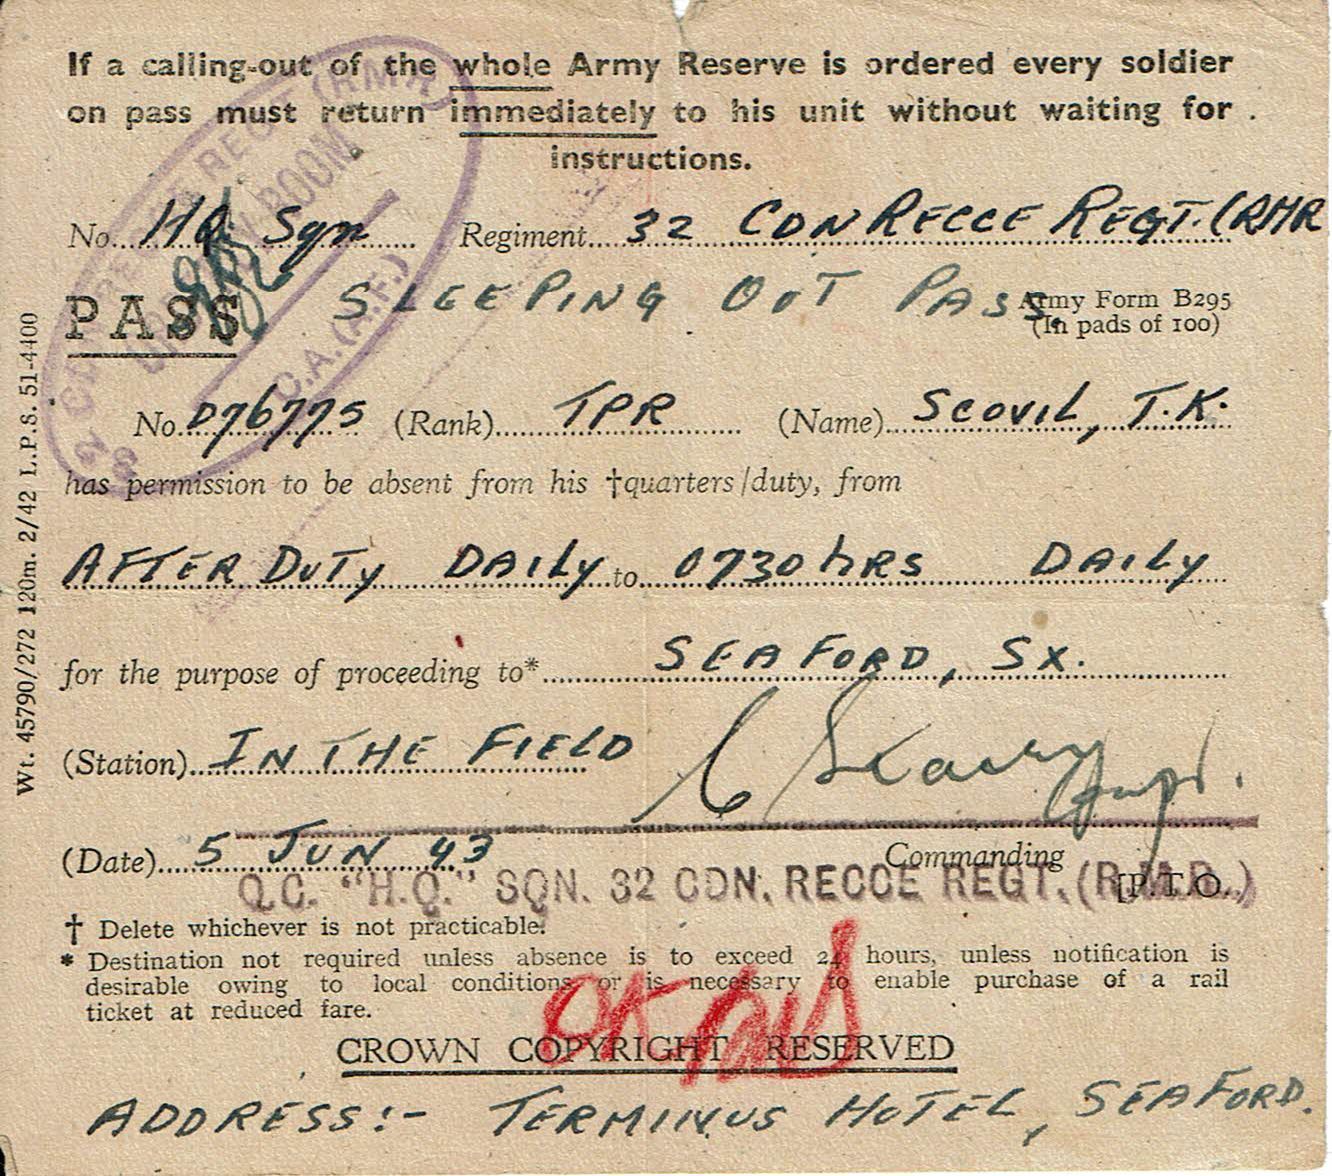 If a calling-out of the whole Army Reserve is ordered every soldier
on pass must return immediately to his unit without waiting for .
instructions.
No. HQ Sqn Regiment 32 CDN RECCE REGT. (RMR
PASS SLEEPING OUT PASS. Army Form B295
(In pads of 100)
No. D76775 (Rank) TPR (Name) SCOVIL, T.K.
has permission to be absent from his †quarters/duty, from
AFTER DUTY DAILY to 0730 hRS DAILY
for the purpose of proceeding to* SEAFORD, SX.
(Station) IN THE FIELD
(Date) 5 JUN 43 Commanding
O.C. "H.Q." SQN. 32 CDN. RECCE REGT. (R.M.R.)
[P.T.O.
† Delete whichever is not practicable.
* Destination not required unless absence is to exceed 24 hours, unless notification is
desirable owing to local conditions or is necessary to enable purchase of a rail
ticket at reduced fare.
OK
CROWN COPYRIGHT RESERVED
ADDRESS:- TERMINUS HOTEL, SEAFORD.
Wt. 45790/272 120m. 2/42 L.P.S. 51-4400
32 CDN RECCE REGT (RMR)
ORDERLY ROOM
C.A.(A.F.)